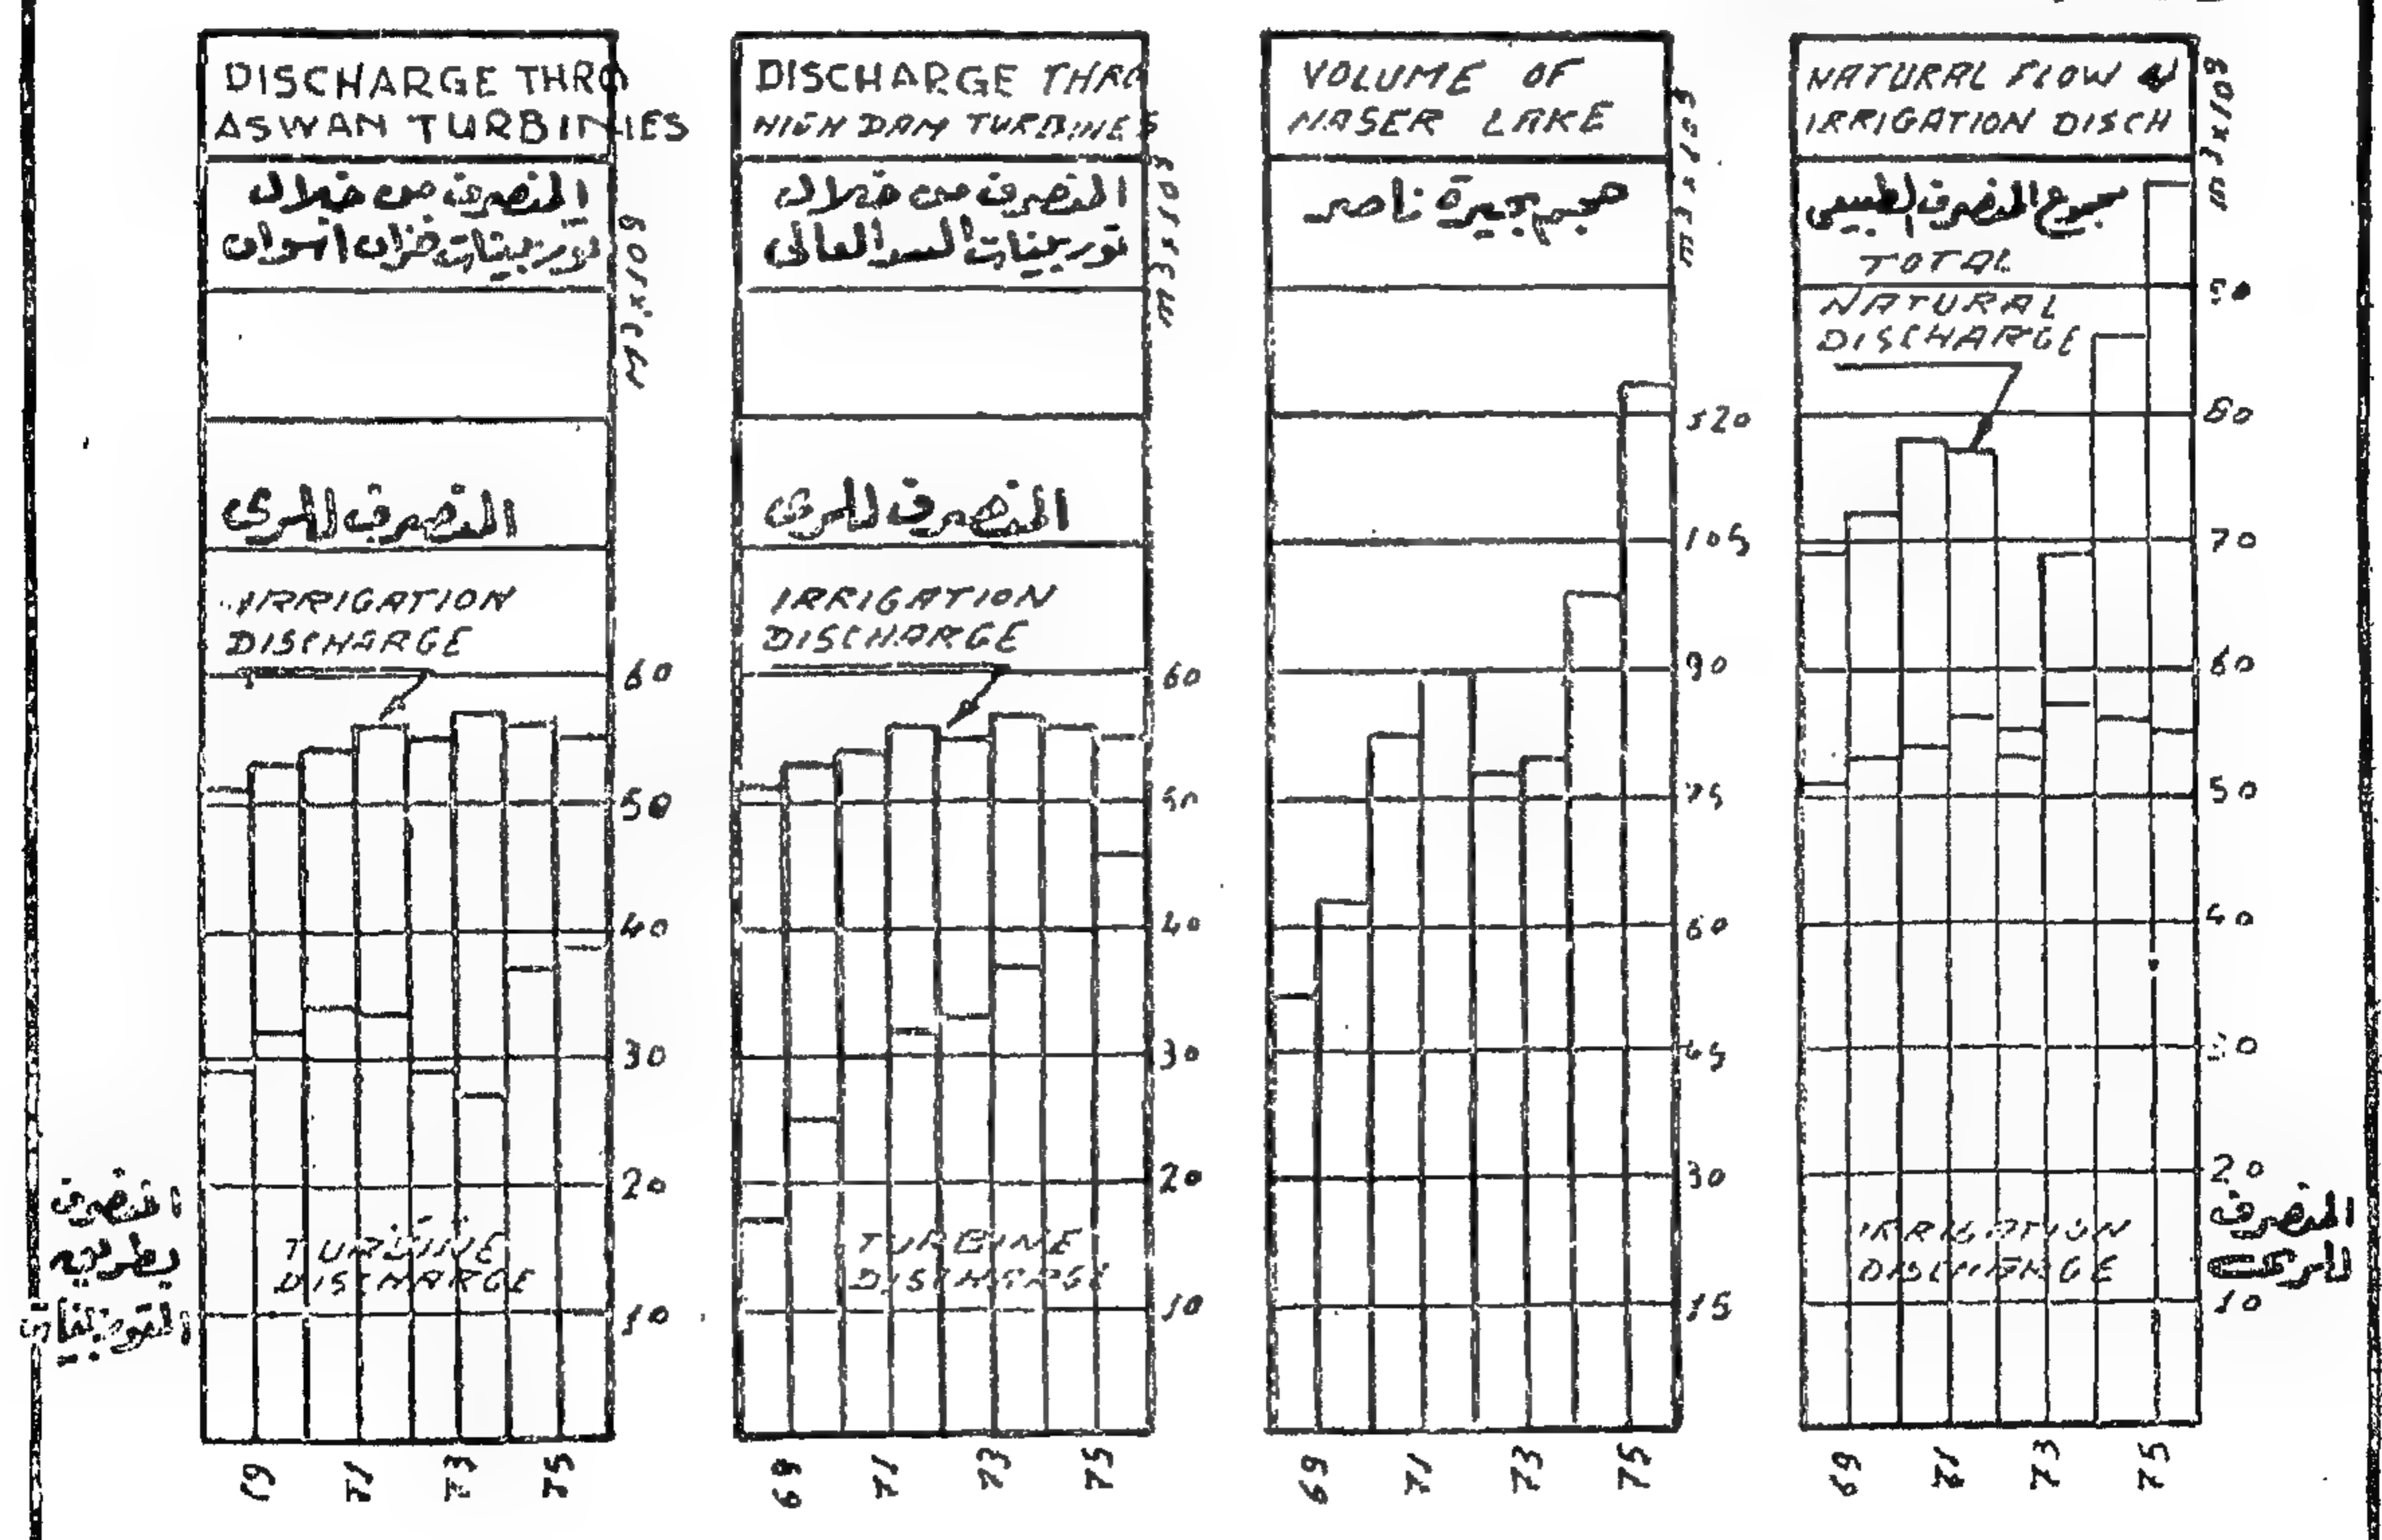 DISCHARGE THRO
ASWAN TURBINIES
المنصرف من خلال
توربينات خزان اسوان
M3x109
المنصرف للرى
IRRIGATION
DISCHARGE
60
50
40
30
20
10
TURBINE
DISCHARGE
المنصرف
بطريق
التوربينات
69
71
73
75
DISCHARGE THRO
HIGH DAM TURBINES
المنصرف من خلال
توربينات السد العالى
M3x109
المنصرف للرى
IRRIGATION
DISCHARGE
60
50
40
30
20
10
TURBINE
DISCHARGE
69
71
73
75
VOLUME OF
NASER LAKE
حجم بحيرة ناصر
M3x109
120
105
90
75
60
45
30
15
69
71
73
75
NATURAL FLOW &
IRRIGATION DISCH
M3x109
مجموع المنصرف الطبيعى
TOTAL
NATURAL
DISCHARGE
90
80
70
60
50
40
30
20
10
IRRIGATION
DISCHARGE
المنصرف
للرى
69
71
73
75